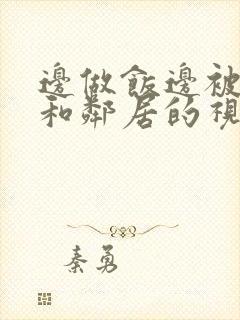 邊做飯邊被
和鄰居的視
秦勇